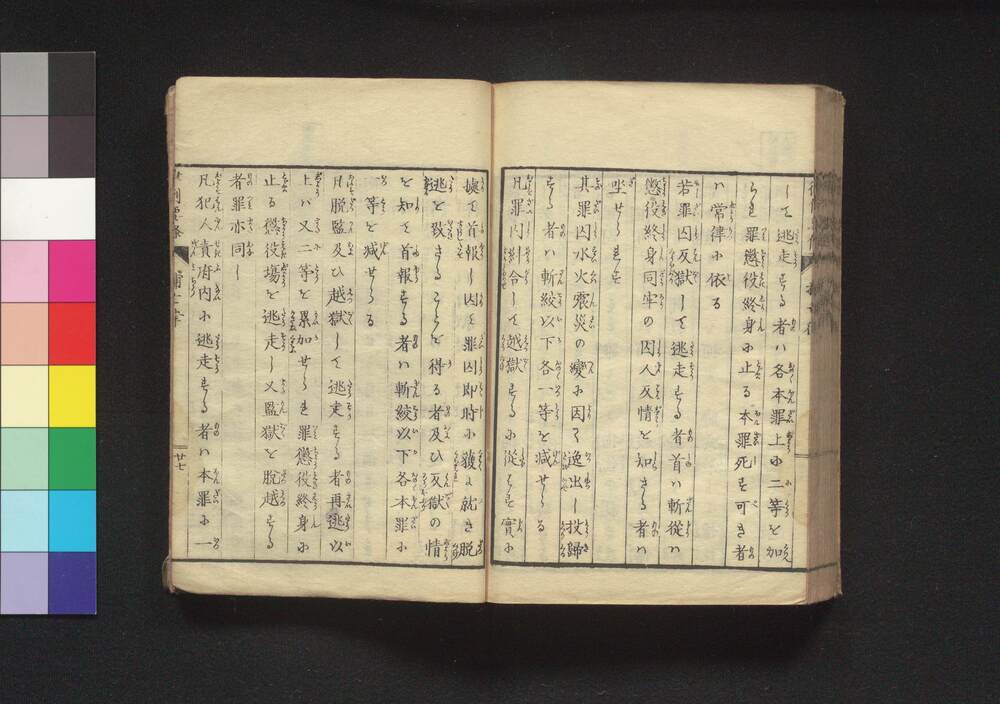 して逃走する者ハ各本罪上に二等を加
られ罪懲役終身に止る本罪死す可き者
ハ常律に依る
若罪囚反獄して逃走する者首ハ斬從ハ
懲役終身同牢の囚人反情を知さる者ハ
坐せられす
其罪囚水火震災の變に因て逸出し投歸
する者ハ斬絞以下各一等を減せらる
凡罪囚糾合して越獄するに從はす實に
を首報し因て罪囚即時に獲に就き脱
逃を致さることを得る者及ひ反獄の情
を知て首報する者ハ斬絞以下各本罪に
一等を減せらる
凡脱監及ひ越獄して逃走する者再逃以
上ハ又二等を累加せられ罪懲役終身に
止る懲役場を逃走し又監獄を脱越する
者罪亦同し
凡犯人責府内に逃走する者ハ本罪に一
廿七